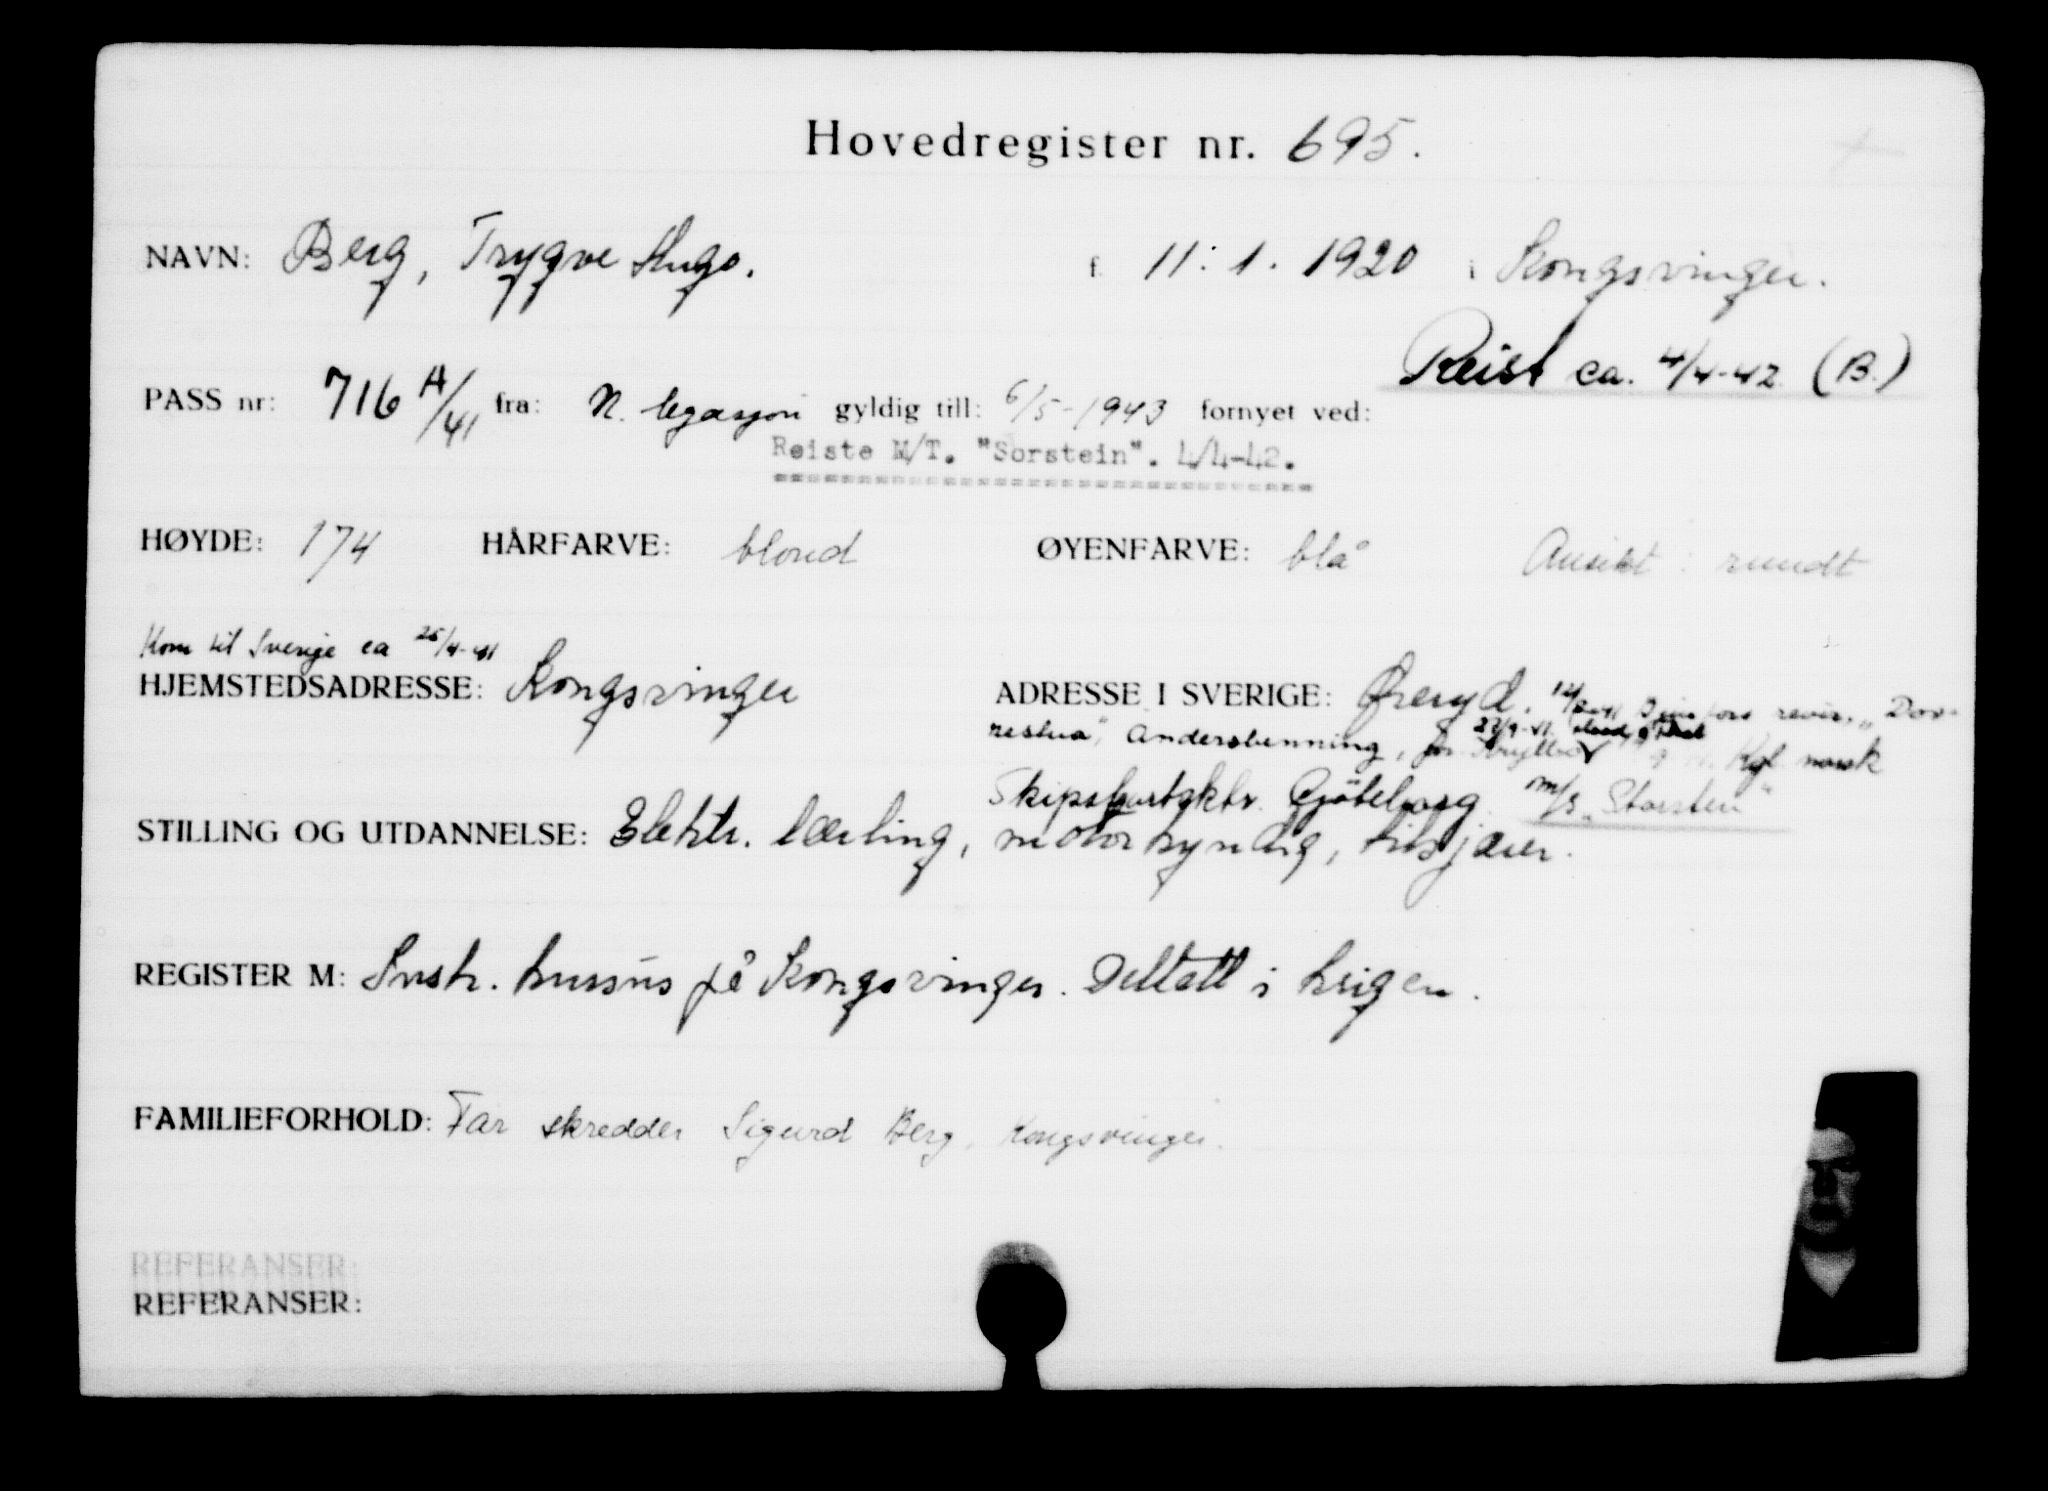 Hovedregister nr. 695.
NAVN: Berg, Trygve Hugo. f. 11.1.1920 i Kongsvinger.
Reist ca. 4/4-42 (B.)
PASS nr: 716 A/41 fra: N. legasjon gyldig till: 6/5-1943 fornyet ved:
Reiste M/T. "Sorstein". 4/4-42.
HØYDE: 174 HÅRFARVE: blond ØYENFARVE: blå Ansikt: rundt
Kom til Sverige ca 25/4-41
HJEMSTEDSADRESSE: Kongsvinger ADRESSE I SVERIGE: Øreryd. revir, „Dov-
restua", Andersbenning, Kgl. norsk
Gjöteborg. m/s „Storsten"
STILLING OG UTDANNELSE: Elektr. lærling, motorkyndig,
REGISTER M: Instr. kursus på Kongsvinger. Deltatt i krigen.
FAMILIEFORHOLD: Far skredder Sigurd Berg, Kongsvinger.
REFERANSER:
REFERANSER: